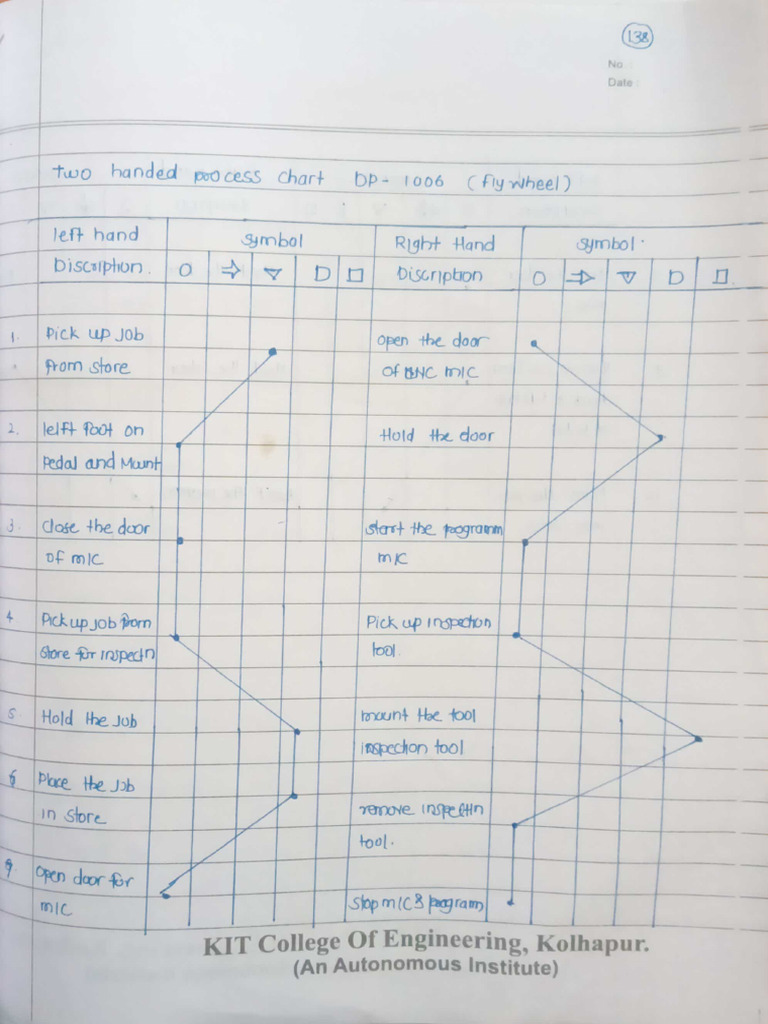 138
No. :
Date :
Two handed process chart DP-1006 (flywheel)
left hand symbol Right Hand symbol.
Discription. O ⇒ ▽ D □ Discription O ⇒ ▽ D □
1. Pick up Job open the door
from store of CNC m/c
2. lelft foot on Hold the door
pedal and Mount
3. Close the door start the programm
of m/c m/c
4 Pick up job from Pick up inspection
store for inspectn tool.
5. Hold the Job mount the tool
inspection tool
6 Place the Job
in store remove inspectin
tool.
9. open door for
m/c stop m/c & program
KIT College Of Engineering, Kolhapur.
(An Autonomous Institute)